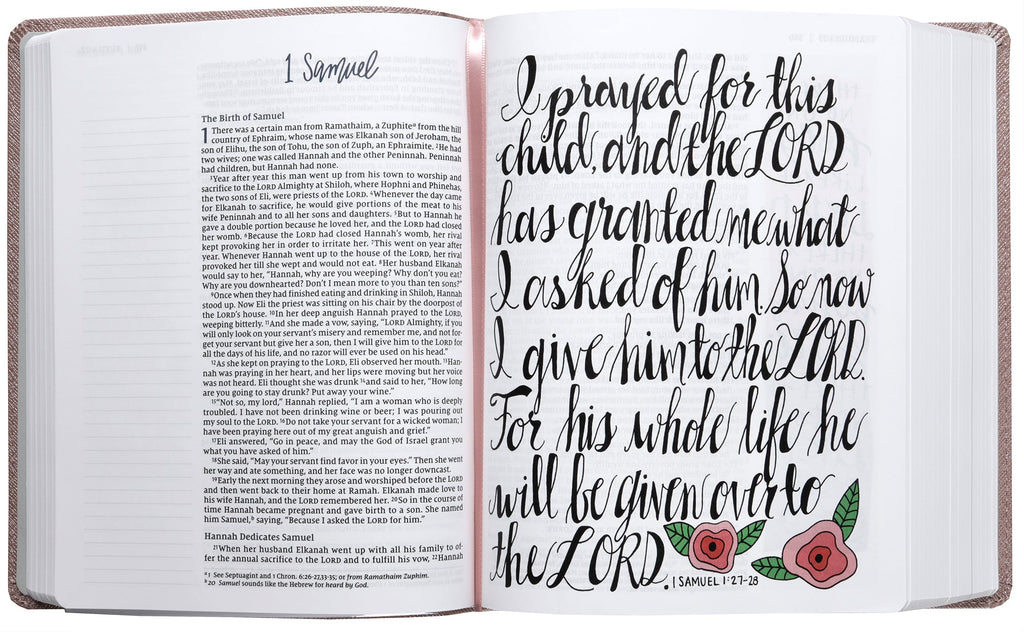 1 Samuel
The Birth of Samuel
1 There was a certain man from Ramathaim, a Zuphiteᵃ from the hill
country of Ephraim, whose name was Elkanah son of Jeroham, the
son of Elihu, the son of Tohu, the son of Zuph, an Ephraimite. ²He had
two wives; one was called Hannah and the other Peninnah. Peninnah
had children, but Hannah had none.
³Year after year this man went up from his town to worship and
sacrifice to the LORD Almighty at Shiloh, where Hophni and Phinehas,
the two sons of Eli, were priests of the LORD. ⁴Whenever the day came
for Elkanah to sacrifice, he would give portions of the meat to his
wife Peninnah and to all her sons and daughters. ⁵But to Hannah he
gave a double portion because he loved her, and the LORD had closed
her womb. ⁶Because the LORD had closed Hannah's womb, her rival
kept provoking her in order to irritate her. ⁷This went on year after
year. Whenever Hannah went up to the house of the LORD, her rival
provoked her till she wept and would not eat. ⁸Her husband Elkanah
would say to her, "Hannah, why are you weeping? Why don't you eat?
Why are you downhearted? Don't I mean more to you than ten sons?"
⁹Once when they had finished eating and drinking in Shiloh, Hannah
stood up. Now Eli the priest was sitting on his chair by the doorpost of
the LORD's house. ¹⁰In her deep anguish Hannah prayed to the LORD,
weeping bitterly. ¹¹And she made a vow, saying, "LORD Almighty, if you
will only look on your servant's misery and remember me, and not for-
get your servant but give her a son, then I will give him to the LORD for
all the days of his life, and no razor will ever be used on his head."
¹²As she kept on praying to the LORD, Eli observed her mouth. ¹³Han-
nah was praying in her heart, and her lips were moving but her voice
was not heard. Eli thought she was drunk ¹⁴and said to her, "How long
are you going to stay drunk? Put away your wine."
¹⁵"Not so, my lord," Hannah replied, "I am a woman who is deeply
troubled. I have not been drinking wine or beer; I was pouring out
my soul to the LORD. ¹⁶Do not take your servant for a wicked woman; I
have been praying here out of my great anguish and grief."
¹⁷Eli answered, "Go in peace, and may the God of Israel grant you
what you have asked of him."
¹⁸She said, "May your servant find favor in your eyes." Then she went
her way and ate something, and her face was no longer downcast.
¹⁹Early the next morning they arose and worshiped before the LORD
and then went back to their home at Ramah. Elkanah made love to
his wife Hannah, and the LORD remembered her. ²⁰So in the course of
time Hannah became pregnant and gave birth to a son. She named
him Samuel,ᵇ saying, "Because I asked the LORD for him."
Hannah Dedicates Samuel
²¹When her husband Elkanah went up with all his family to of-
fer the annual sacrifice to the LORD and to fulfill his vow, ²²Hannah
ᵃ 1 See Septuagint and 1 Chron. 6:26-27,33-35; or from Ramathaim Zuphim.
ᵇ 20 Samuel sounds like the Hebrew for heard by God.
I prayed for this
child, and the LORD
has granted me what
I asked of him. So now
I give him to the LORD.
For his whole life he
will be given over to
the LORD.
1 SAMUEL 1:27-28